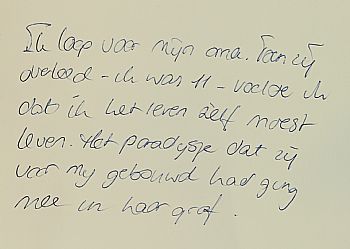 Ik loop voor mijn oma. Toen zij
overleed - ik was 11 - voelde ik
dat ik het leven zelf moest
leven. Het paradijsje dat zij
voor mij gebouwd had ging
mee in haar graf.